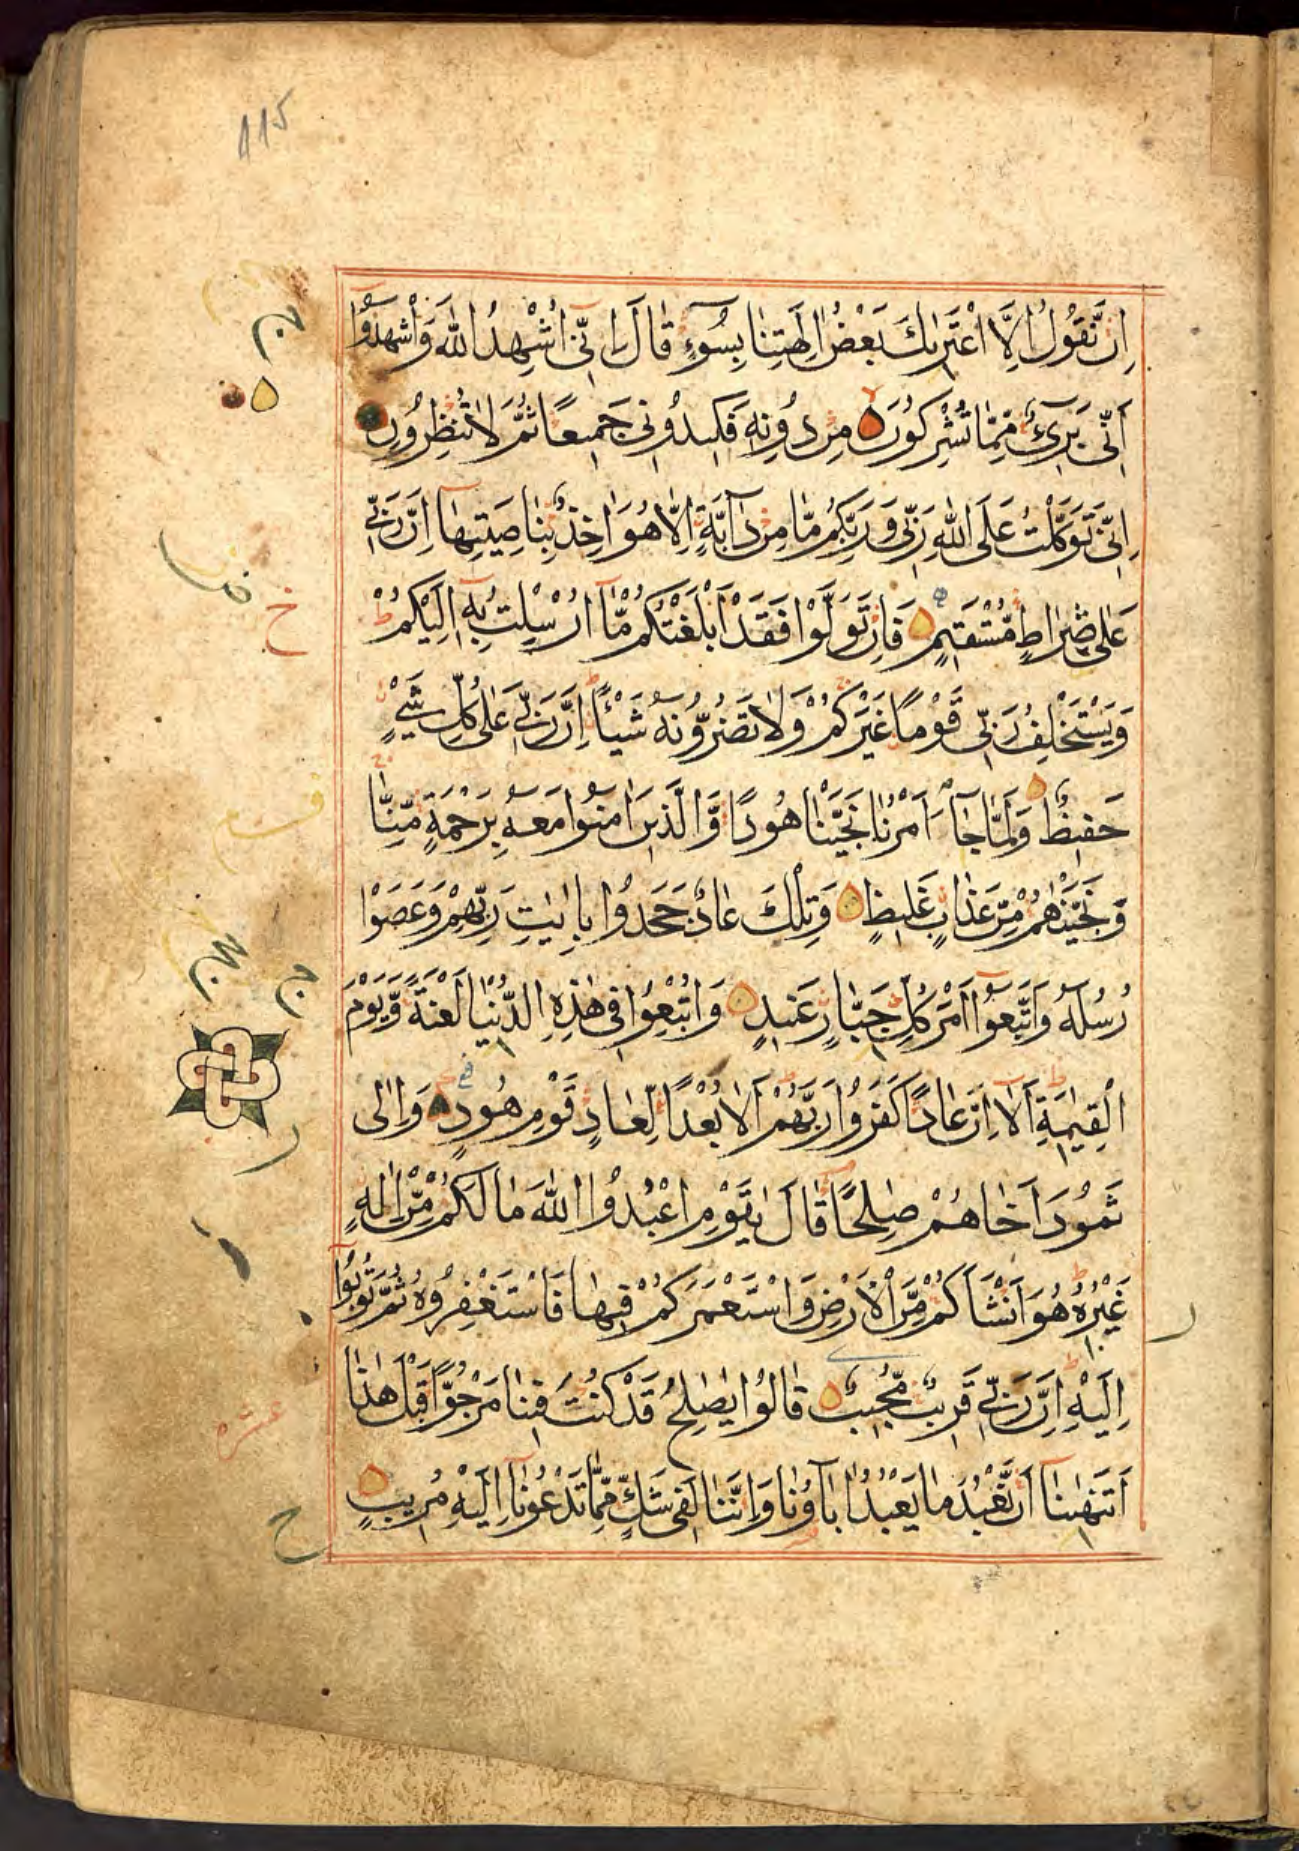 115
اِنْ نَقُولُ اِلَّا اعْتَرٰىكَ بَعْضُ اٰلِهَتِنَا بِسُوءٍ قَالَ اِنِّى اُشْهِدُ اللّٰهَ وَاشْهَدُوا
اَنِّى بَرِىءٌ مِمَّا تُشْرِكُونَ مِنْ دُونِهٖ فَكِيدُونِى جَمِيعًا ثُمَّ لَا تُنْظِرُونِ
اِنِّى تَوَكَّلْتُ عَلَى اللّٰهِ رَبِّى وَرَبِّكُمْ مَّا مِنْ دَآبَّةٍ اِلَّا هُوَ اٰخِذٌ بِنَاصِيَتِهَا اِنَّ رَبِّى
عَلٰى صِرَاطٍ مُّسْتَقِيمٍ فَاِنْ تَوَلَّوْا فَقَدْ اَبْلَغْتُكُمْ مَّا اُرْسِلْتُ بِهٖ اِلَيْكُمْ
وَيَسْتَخْلِفُ رَبِّى قَوْمًا غَيْرَكُمْ وَلَا تَضُرُّونَهُ شَيْئًا اِنَّ رَبِّى عَلٰى كُلِّ شَىْءٍ
حَفِيظٌ وَلَمَّا جَآءَ اَمْرُنَا نَجَّيْنَا هُودًا وَّالَّذِينَ اٰمَنُوا مَعَهُ بِرَحْمَةٍ مِّنَّا
وَنَجَّيْنٰهُمْ مِّنْ عَذَابٍ غَلِيظٍ وَتِلْكَ عَادٌ جَحَدُوا بِاٰيٰتِ رَبِّهِمْ وَعَصَوْا
رُسُلَهُ وَاتَّبَعُوا اَمْرَ كُلِّ جَبَّارٍ عَنِيدٍ وَاُتْبِعُوا فِى هٰذِهِ الدُّنْيَا لَعْنَةً وَّيَوْمَ
الْقِيٰمَةِ اَلَا اِنَّ عَادًا كَفَرُوا رَبَّهُمْ اَلَا بُعْدًا لِّعَادٍ قَوْمِ هُودٍ وَاِلٰى
ثَمُودَ اَخَاهُمْ صٰلِحًا قَالَ يٰقَوْمِ اعْبُدُوا اللّٰهَ مَا لَكُمْ مِّنْ اِلٰهٍ
غَيْرُهُ هُوَ اَنْشَاَكُمْ مِّنَ الْاَرْضِ وَاسْتَعْمَرَكُمْ فِيهَا فَاسْتَغْفِرُوهُ ثُمَّ تُوبُوا
اِلَيْهِ اِنَّ رَبِّى قَرِيبٌ مُّجِيبٌ قَالُوا يٰصٰلِحُ قَدْ كُنْتَ فِينَا مَرْجُوًّا قَبْلَ هٰذَا
اَتَنْهٰىنَا اَنْ نَّعْبُدَ مَا يَعْبُدُ اٰبَآؤُنَا وَاِنَّنَا لَفِى شَكٍّ مِّمَّا تَدْعُونَا اِلَيْهِ مُرِيبٍ
عشره